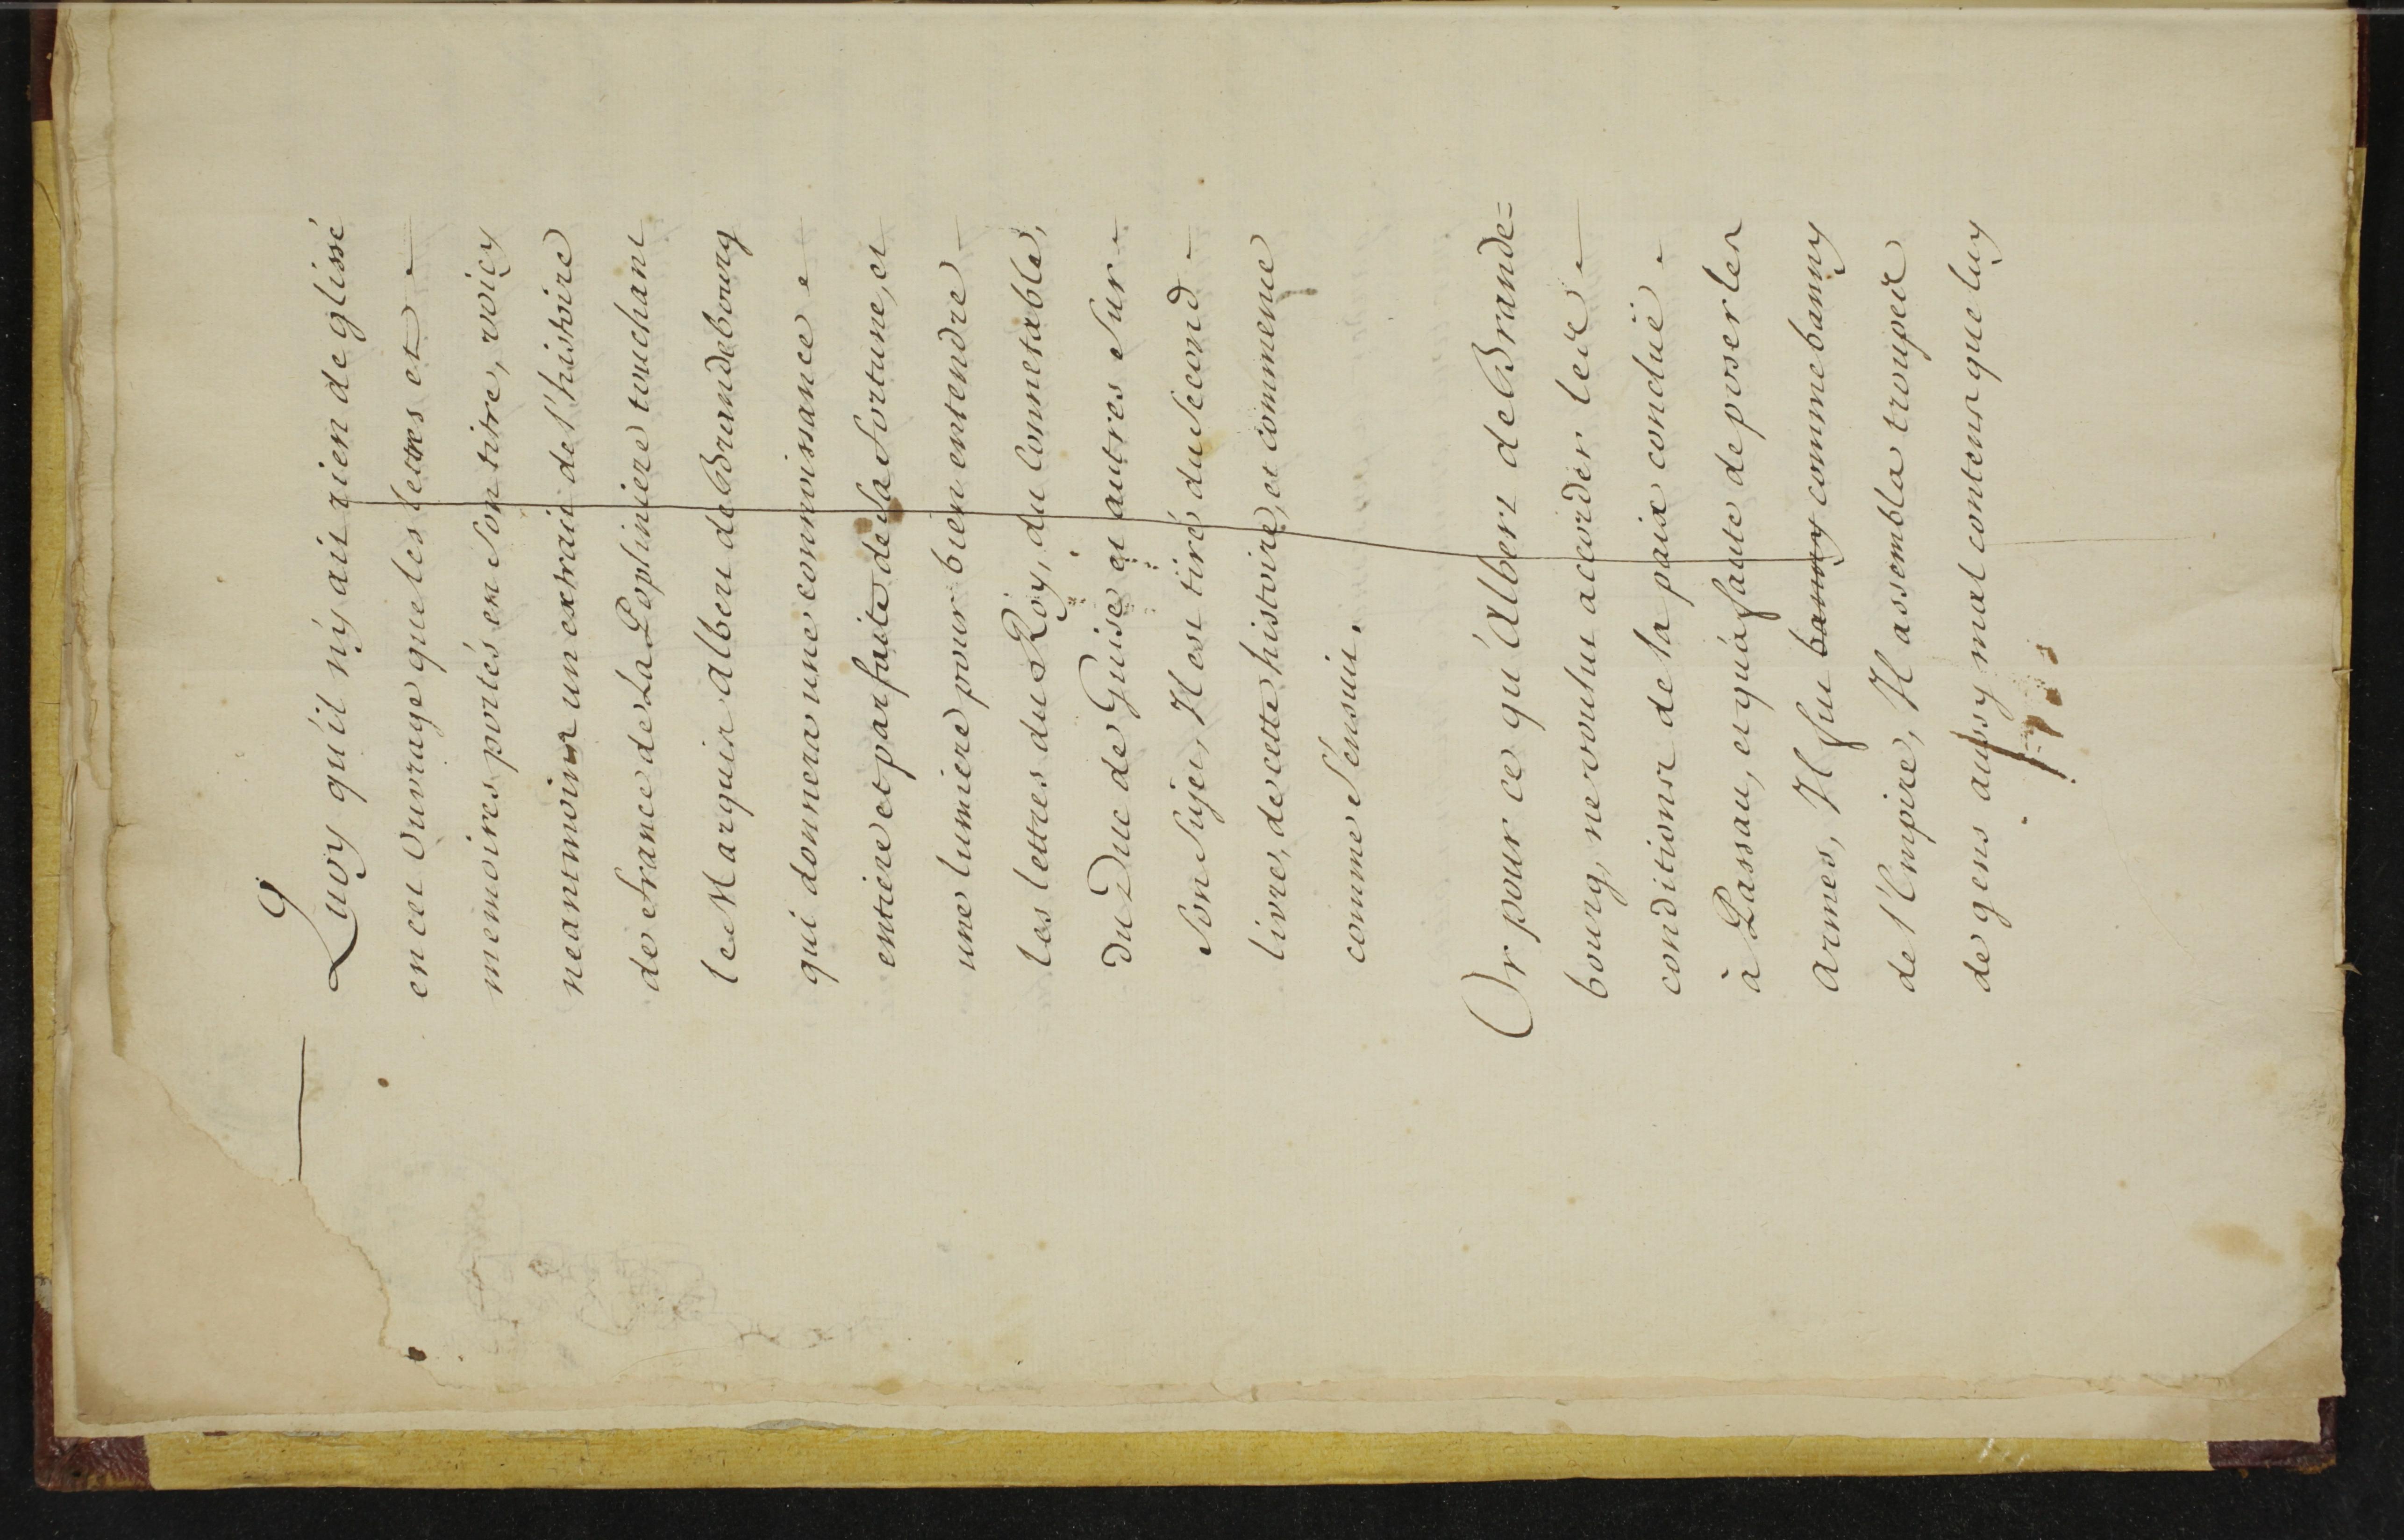 Quoy qu'il ny ait rien de glissé
en cet Ouvrage que les lettres et
memoires portés en Son titre, voicy
neanmoins un extrait de l'histoire
de France de La Popliniere touchant
le Marquis Albert de Brandebourg
qui donnera une connoissance
entiere et parfaite de Sa Fortune, et
une lumiere pour bien entendre
les lettres du Roy, du Connetable,
du Duc de Guise et autres Sur
Son Sujet, Il est tiré du Second
livre, de cette histoire, et commence
comme S'ensuit.
Or pour ce qu'Albert de Brande=
bourg, ne voulut accorder les
conditions de la paix concluë
à Passau, et qu'a faute de poser les
armes, Il fut banny comme banny
de l'Empire, Il assembla troupes
de gens aussy mal contens que luy